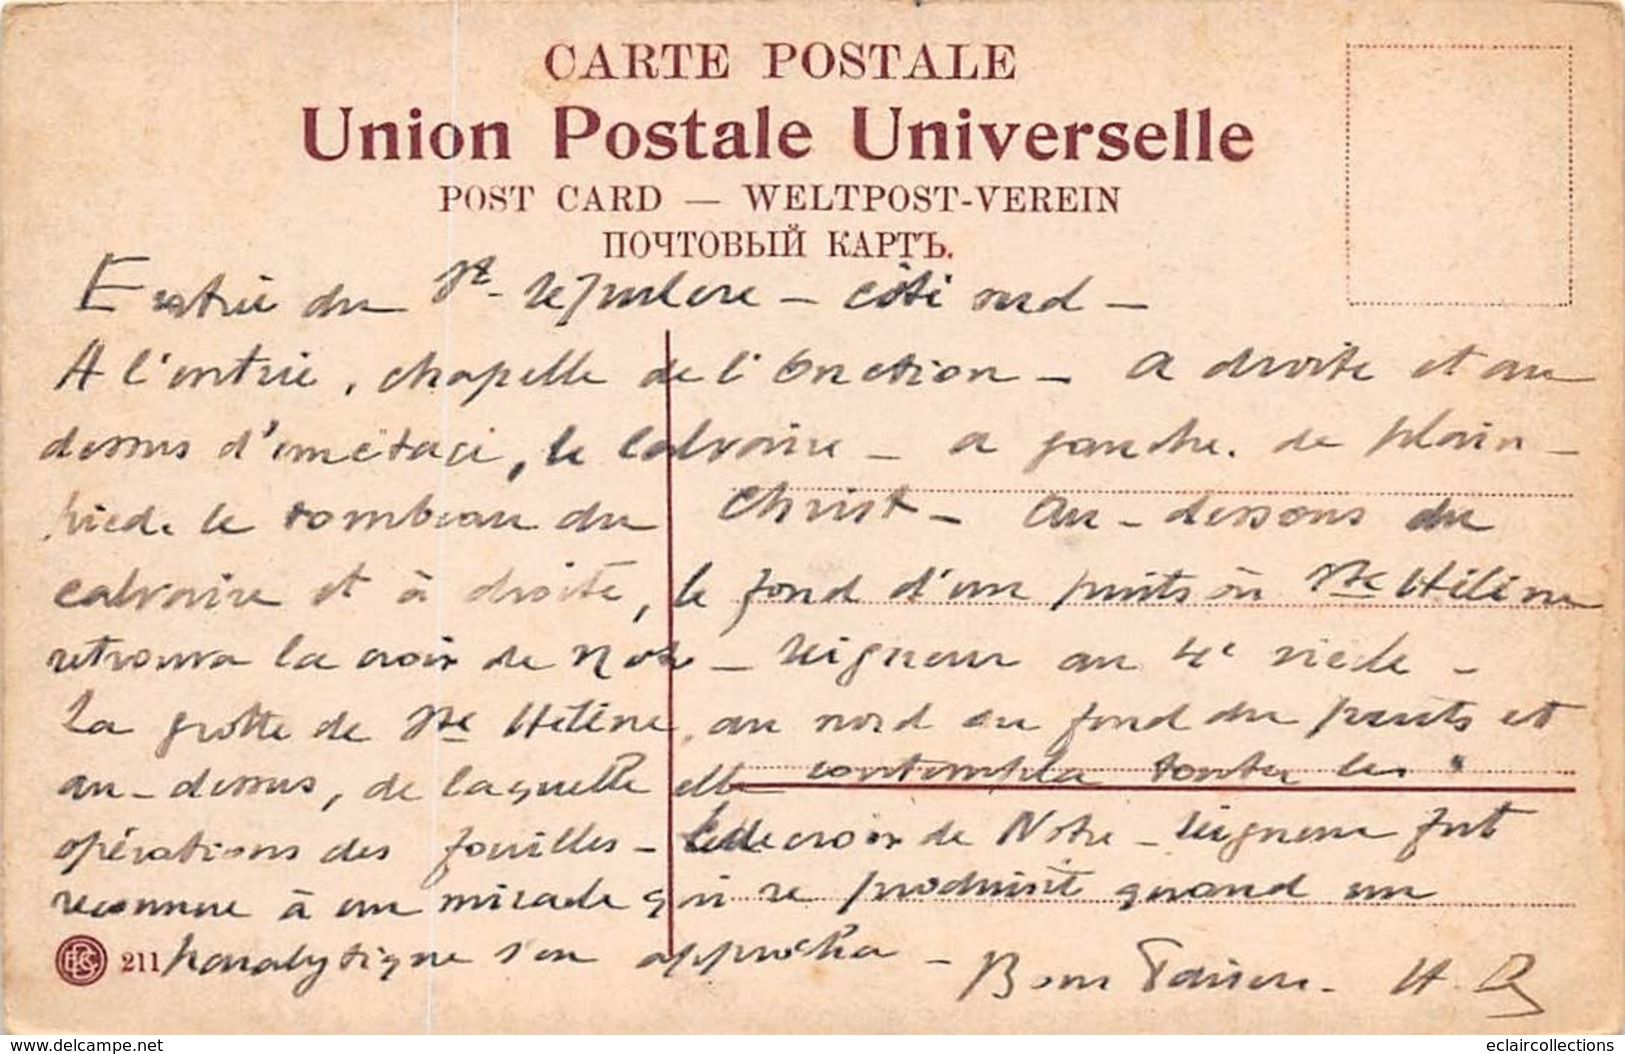 CARTE POSTALE
Union Postale Universelle
POST CARD — WELTPOST-VEREIN
ПОЧТОВЫЙ КАРТЪ.
Entrée du St-Sépulcre – côté sud –
A l'entrée, chapelle de l'Onction – A droite et au
dessus d'un étage, le calvaire – a gauche. de plain-
pied. le tombeau du Christ – Au-dessous du
calvaire et à droite, le fond d'un puits où Ste Hélène
retrouva la croix de Notre-Seigneur au 4e siècle –
La grotte de Ste Hélène, au nord au fond du puits et
au-dessus, de laquelle elle contempla toutes les
opérations des fouilles – croix de Notre-Seigneur fut
reconnue à un miracle qui se produisit quand un
211 paralytique s'en approcha – H. D
delcampe.net
eclaircollections